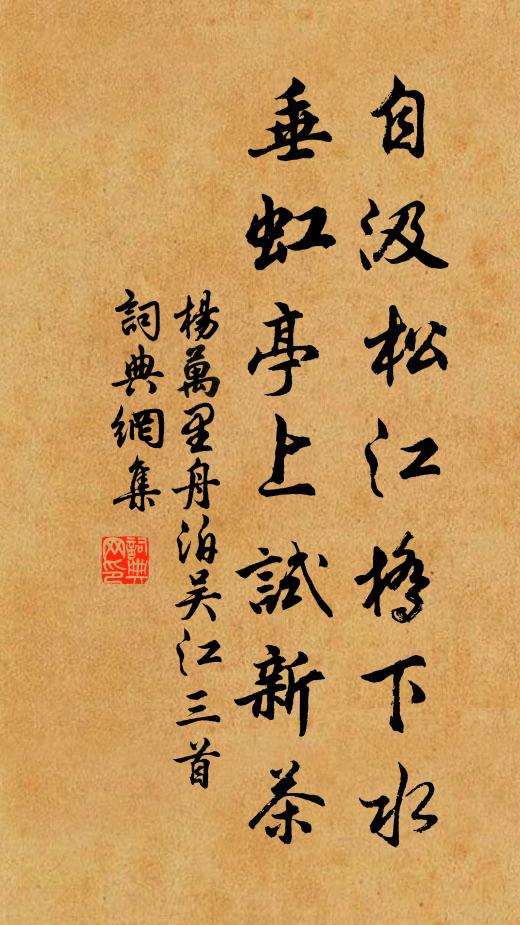 自汲松江橋下水
垂虹亭上試新茶
楊萬里舟泊吳江三首
詞典網集
詞典網印